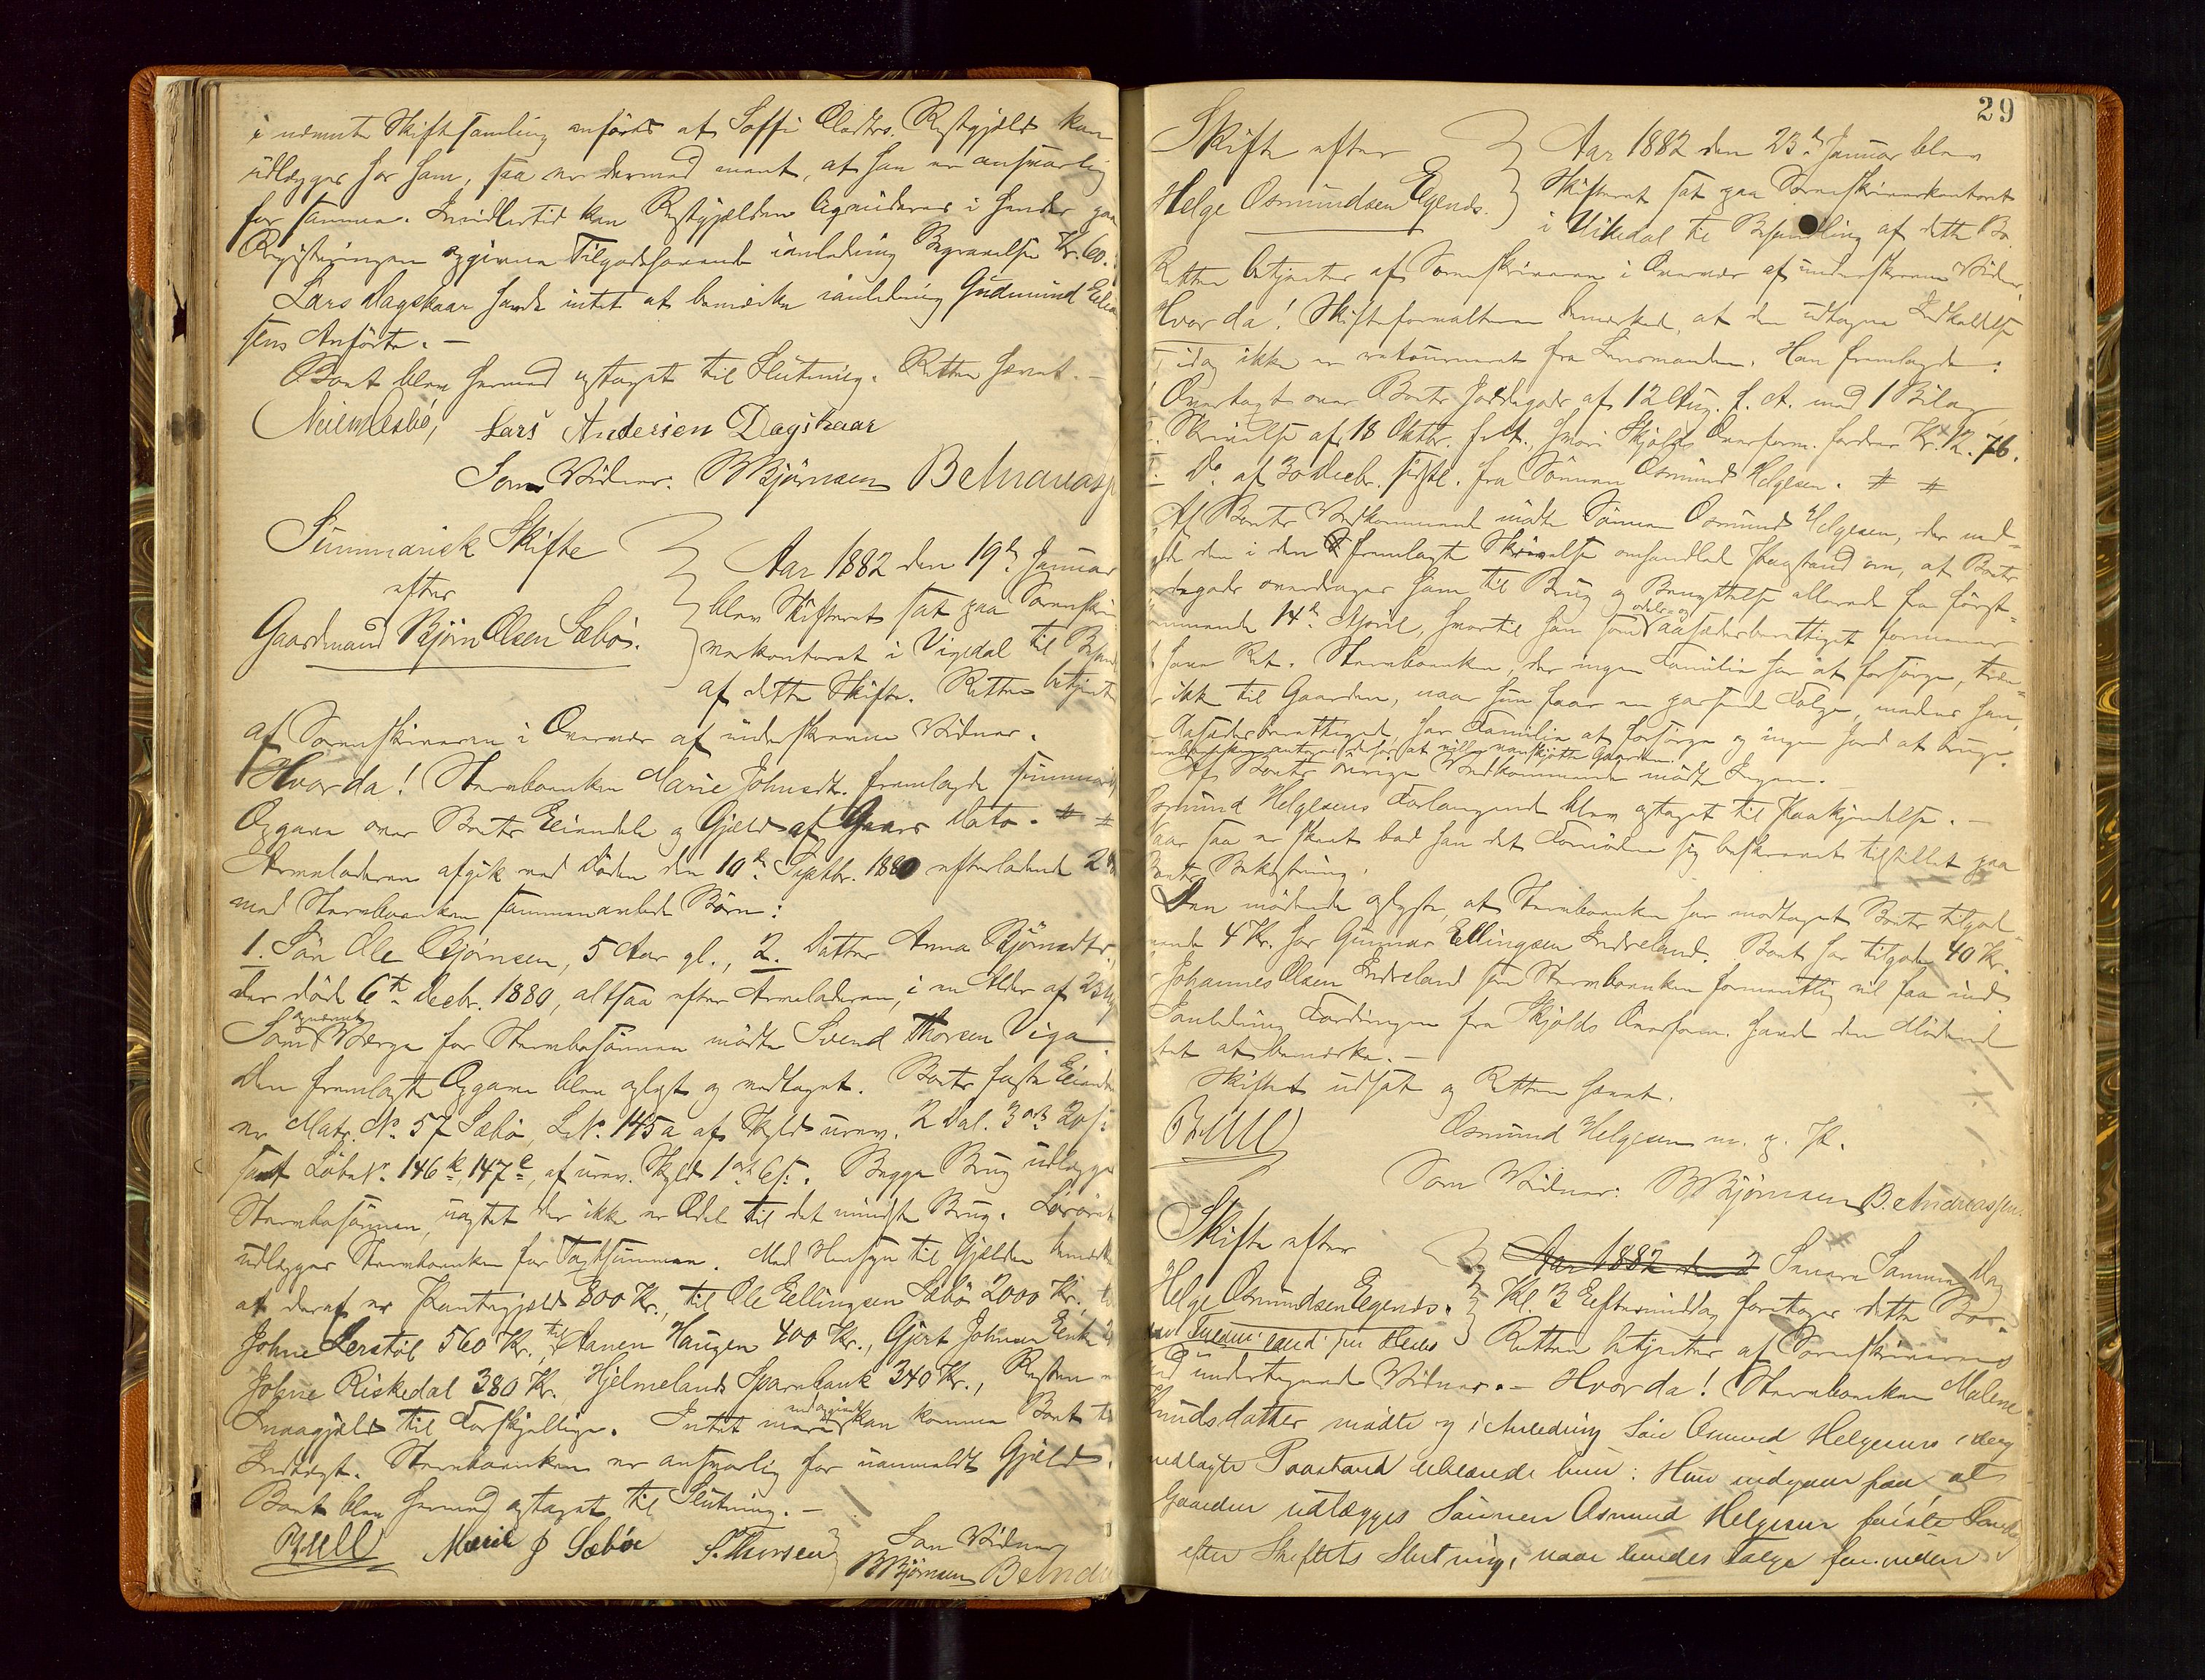 i nævnte Skiftesamling anførte af Soffi Olsdtrs. Restgjæld kan
udlægges for ham, saa er dermed ment, at han er ansvarlig
for samme. Imidlertid kan Restgjælden i
Registeringen opgivne Tilgodehavende ianledning Begravelse Kr. 60.
Lars Dagskaar havde intet at bemærke ianledning Gudmund
sens Anførte. —
Boet blev hermed optaget til Slutning. Retten hævet. —
Lars Andersen Dagskaar
Som Vidner: B Bjørnsen B Andreass
Summarisk Skifte
efter
Gaardmand Bjørn Olsen Sæbø.
Aar 1882 den 19de Januar
blev Skifteret sat paa Sorenskri
verkontoret i Vigedal til
af dette Skifte. Retten betjent
af Sorenskriveren i Overvær af underskrevne Vidner.
Hvorda! Stervboenken Marie Johnsdt. fremlagde summarisk
Opgave over Boets Eiendele og Gjæld af Gaars Dato. # #
Arveladeren afgik ved Døden den 10de Septbr. 1880 efterladende 2de
med Stervboenken sammenavlede Børn:
1. Søn Ole Bjørnsen, 5 Aar gl., 2. Datter Anna Bjørnsdtr,
der døde 6te Decbr. 1880, altsaa efter Arveladeren, i en Alder af 23
Som opnævnt Værge for Sterbosønnen mødte Svend Thorsen Viga.
Den fremlagte Opgave blev oplæst og vedtaget. Boets faste Eiendom
er Matr. No. 57 Sæbø, L.No. 145a af Skyld urev. 2 Dal. 3 ort 20 s.
samt Løbe No. 146k, 147e, af urev. Skyld 1 ort 6 s. Begge Brug udlægges
Sterbosønnen, uagtet der ikke er Odel til det mindste Brug. Løsøret
udlægges Stervboenken for Taxtsummen. Med Hensyn til Gjælden bemærkes
at deraf er Pantegjæld 800 Kr., til Ole Ellingsen Sæbø 2000 Kr.,
Johne Lerstøl 560 Kr., til Aanen Haugen 400 Kr., Gjert Johnsen
Johne Riskedal 380 Kr., Hjelmelands Sparebank 340 Kr., Resten
Smaagjæld til Forskjellige. Intet mere end opgivet kan komme Boet til
Indtægt. Stervboenken er ansvarlig for uanmeldt Gjæld.
Boet blev hermed optaget til Slutning. —
Marie J Sæbøe S. Thorsen Som Vidner
B Bjørnsen B Andre
29
Skifte efter
Helge Osmundsen Egends.
Aar 1882 den 23de Januar blev
Skifteret sat paa Sorenskriverkontoret
i Vikedal til Behandling af dette Bo.
Retten betjentes af Sorenskriveren i Overvær af underskrevne Vidner,
Hvorda! Skifteforvalteren bemærkede, at den udtagne Indkaldelse
idag ikke er retourneret fra Lensmanden. Han fremlagde:
Overtaxt over Boets Jordegods af 12 Aug. f. A. med 1 Bilag
Skrivelse af 18 Oktbr. f. A. hvori Skjolds Overform. fordrer Kr. 12.76.
Do. af 30 Decbr. sidstl. fra Sønnen Osmund Helgesen. # #
Af Boets Vedkommende mødte Sønnen Osmund Helgesen, der ved-
den i den fremlagte Skrivelse omhandlede Paastand om, at Boets
overdrages ham til Brug og Benyttelse allerede fra først-
kommende 14de April, hvortil han som odels og aasædesberettiget formener
have Ret. Sterboenken, der ingen Familie har at forsørge, træn-
ikke til Gaarden, naar hun faar en passende Følge, medens han,
Aasædesberettigede, har Familie at forsørge og ingen Jord at bruge.
Af Boets øvrige Vedkommende mødte Ingen.
Osmund Helgesens Forlangende blev optaget til Paakjendelse. —
Naar saa er skeet bad han det Fornødne sig beskrevet tilstillet paa
Boets Bekostning.
Den mødende oplyste, at Sterboenken har modtaget Boets tilgode-
4 Kr. hos Gunnar Ellingsen Indreland. Boet har tilgode 40 Kr.
Johannes Olsen Indreland som Sterboenken formentlig vil faa ind
Ianledning Fordringen fra Skjolds Overform. havde den Mødende
tet at bemærke. —
Skiftet udsat og Retten hævet.
Osmund Helgesen m. p. P.
Som Vidner: B Bjørnsen B. Andreassen
Skifte efter
Helge Osmundsen Egends.
Aar 1882 den 2 Samme Dag
Kl. 3 Eftermiddag foretoges dette Bo.
Retten betjentes af Sorenskriveren
undertegnede Vidner. — Hvorda! Sterboenken Malene
Knudsdatter mødte og i Anledning Søn Osmund Helgesens idag
nedlagte Paastand erklærede hun: Hun indgaar paa, at
Gaarden udlægges Sønnen Osmund Helgesen
efter Skiftets Slutning, naar hendes Følge